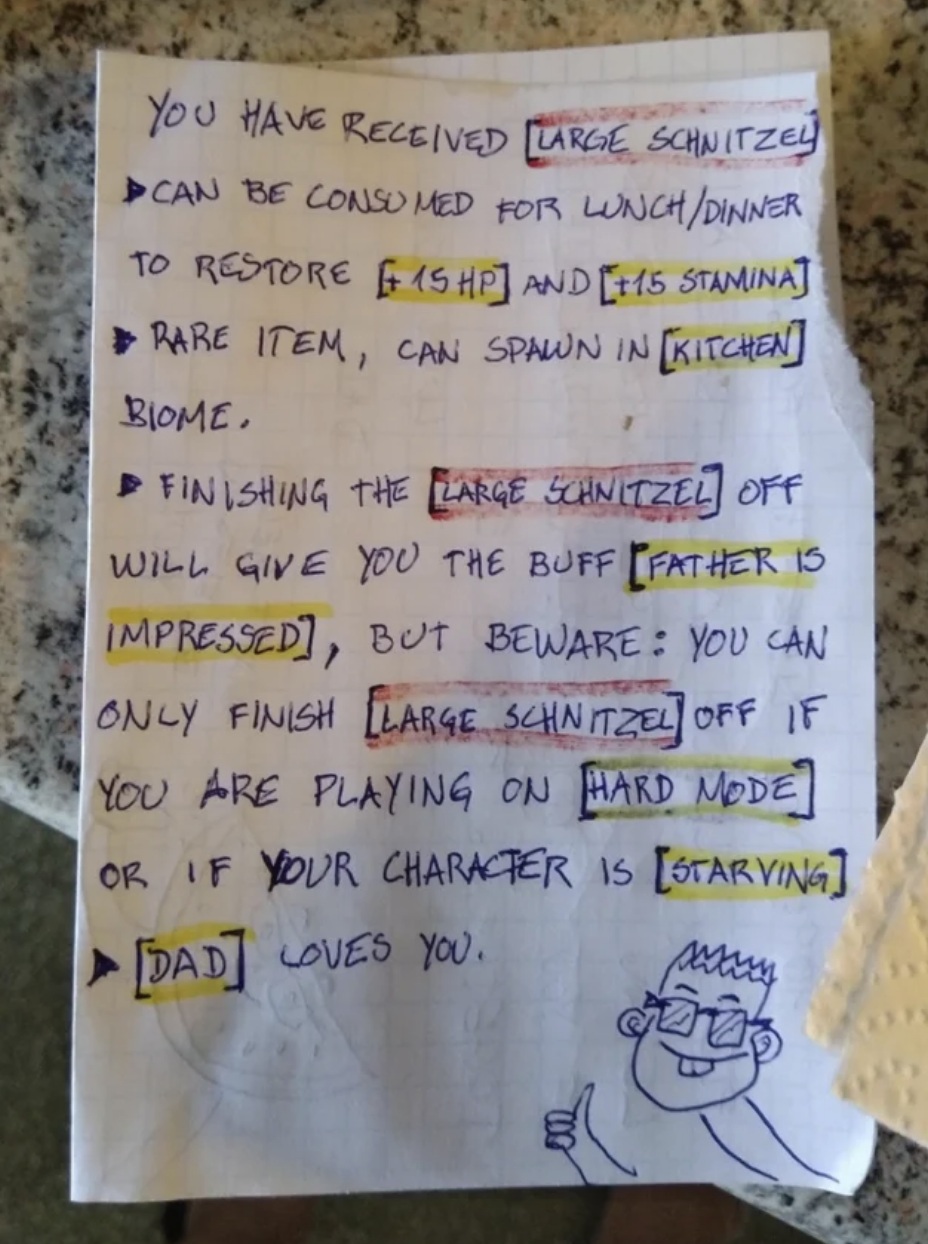 YOU HAVE RECEIVED [LARGE SCHNITZEL]
▶CAN BE CONSUMED FOR LUNCH/DINNER
TO RESTORE [+15 HP] AND [+15 STAMINA]
▶ RARE ITEM, CAN SPAWN IN [KITCHEN]
BIOME.
▶ FINISHING THE [LARGE SCHNITZEL] OFF
WILL GIVE YOU THE BUFF [FATHER IS
IMPRESSED], BUT BEWARE: YOU CAN
ONLY FINISH [LARGE SCHNITZEL] OFF IF
YOU ARE PLAYING ON [HARD MODE]
OR IF YOUR CHARACTER IS [STARVING]
▶ [DAD] LOVES YOU.